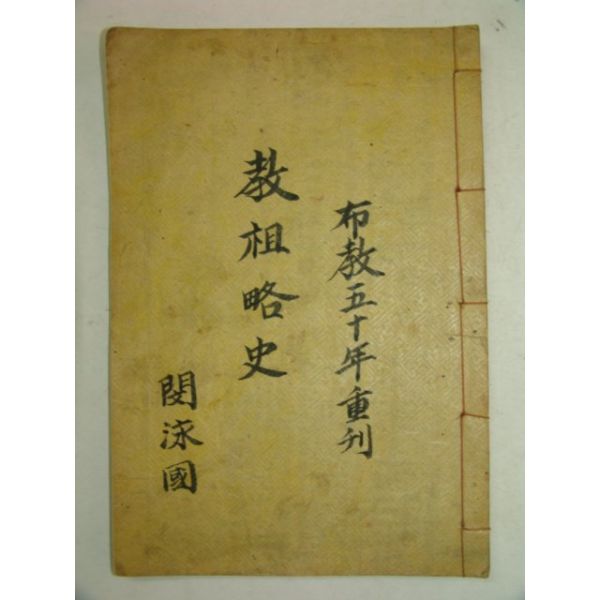 布教五十年重刊
教祖略史
閔泳國